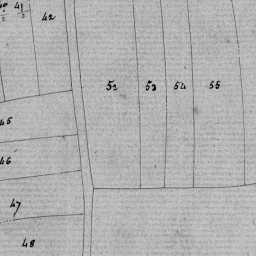 40 41
42
52 53 54 55
45
46
47
48